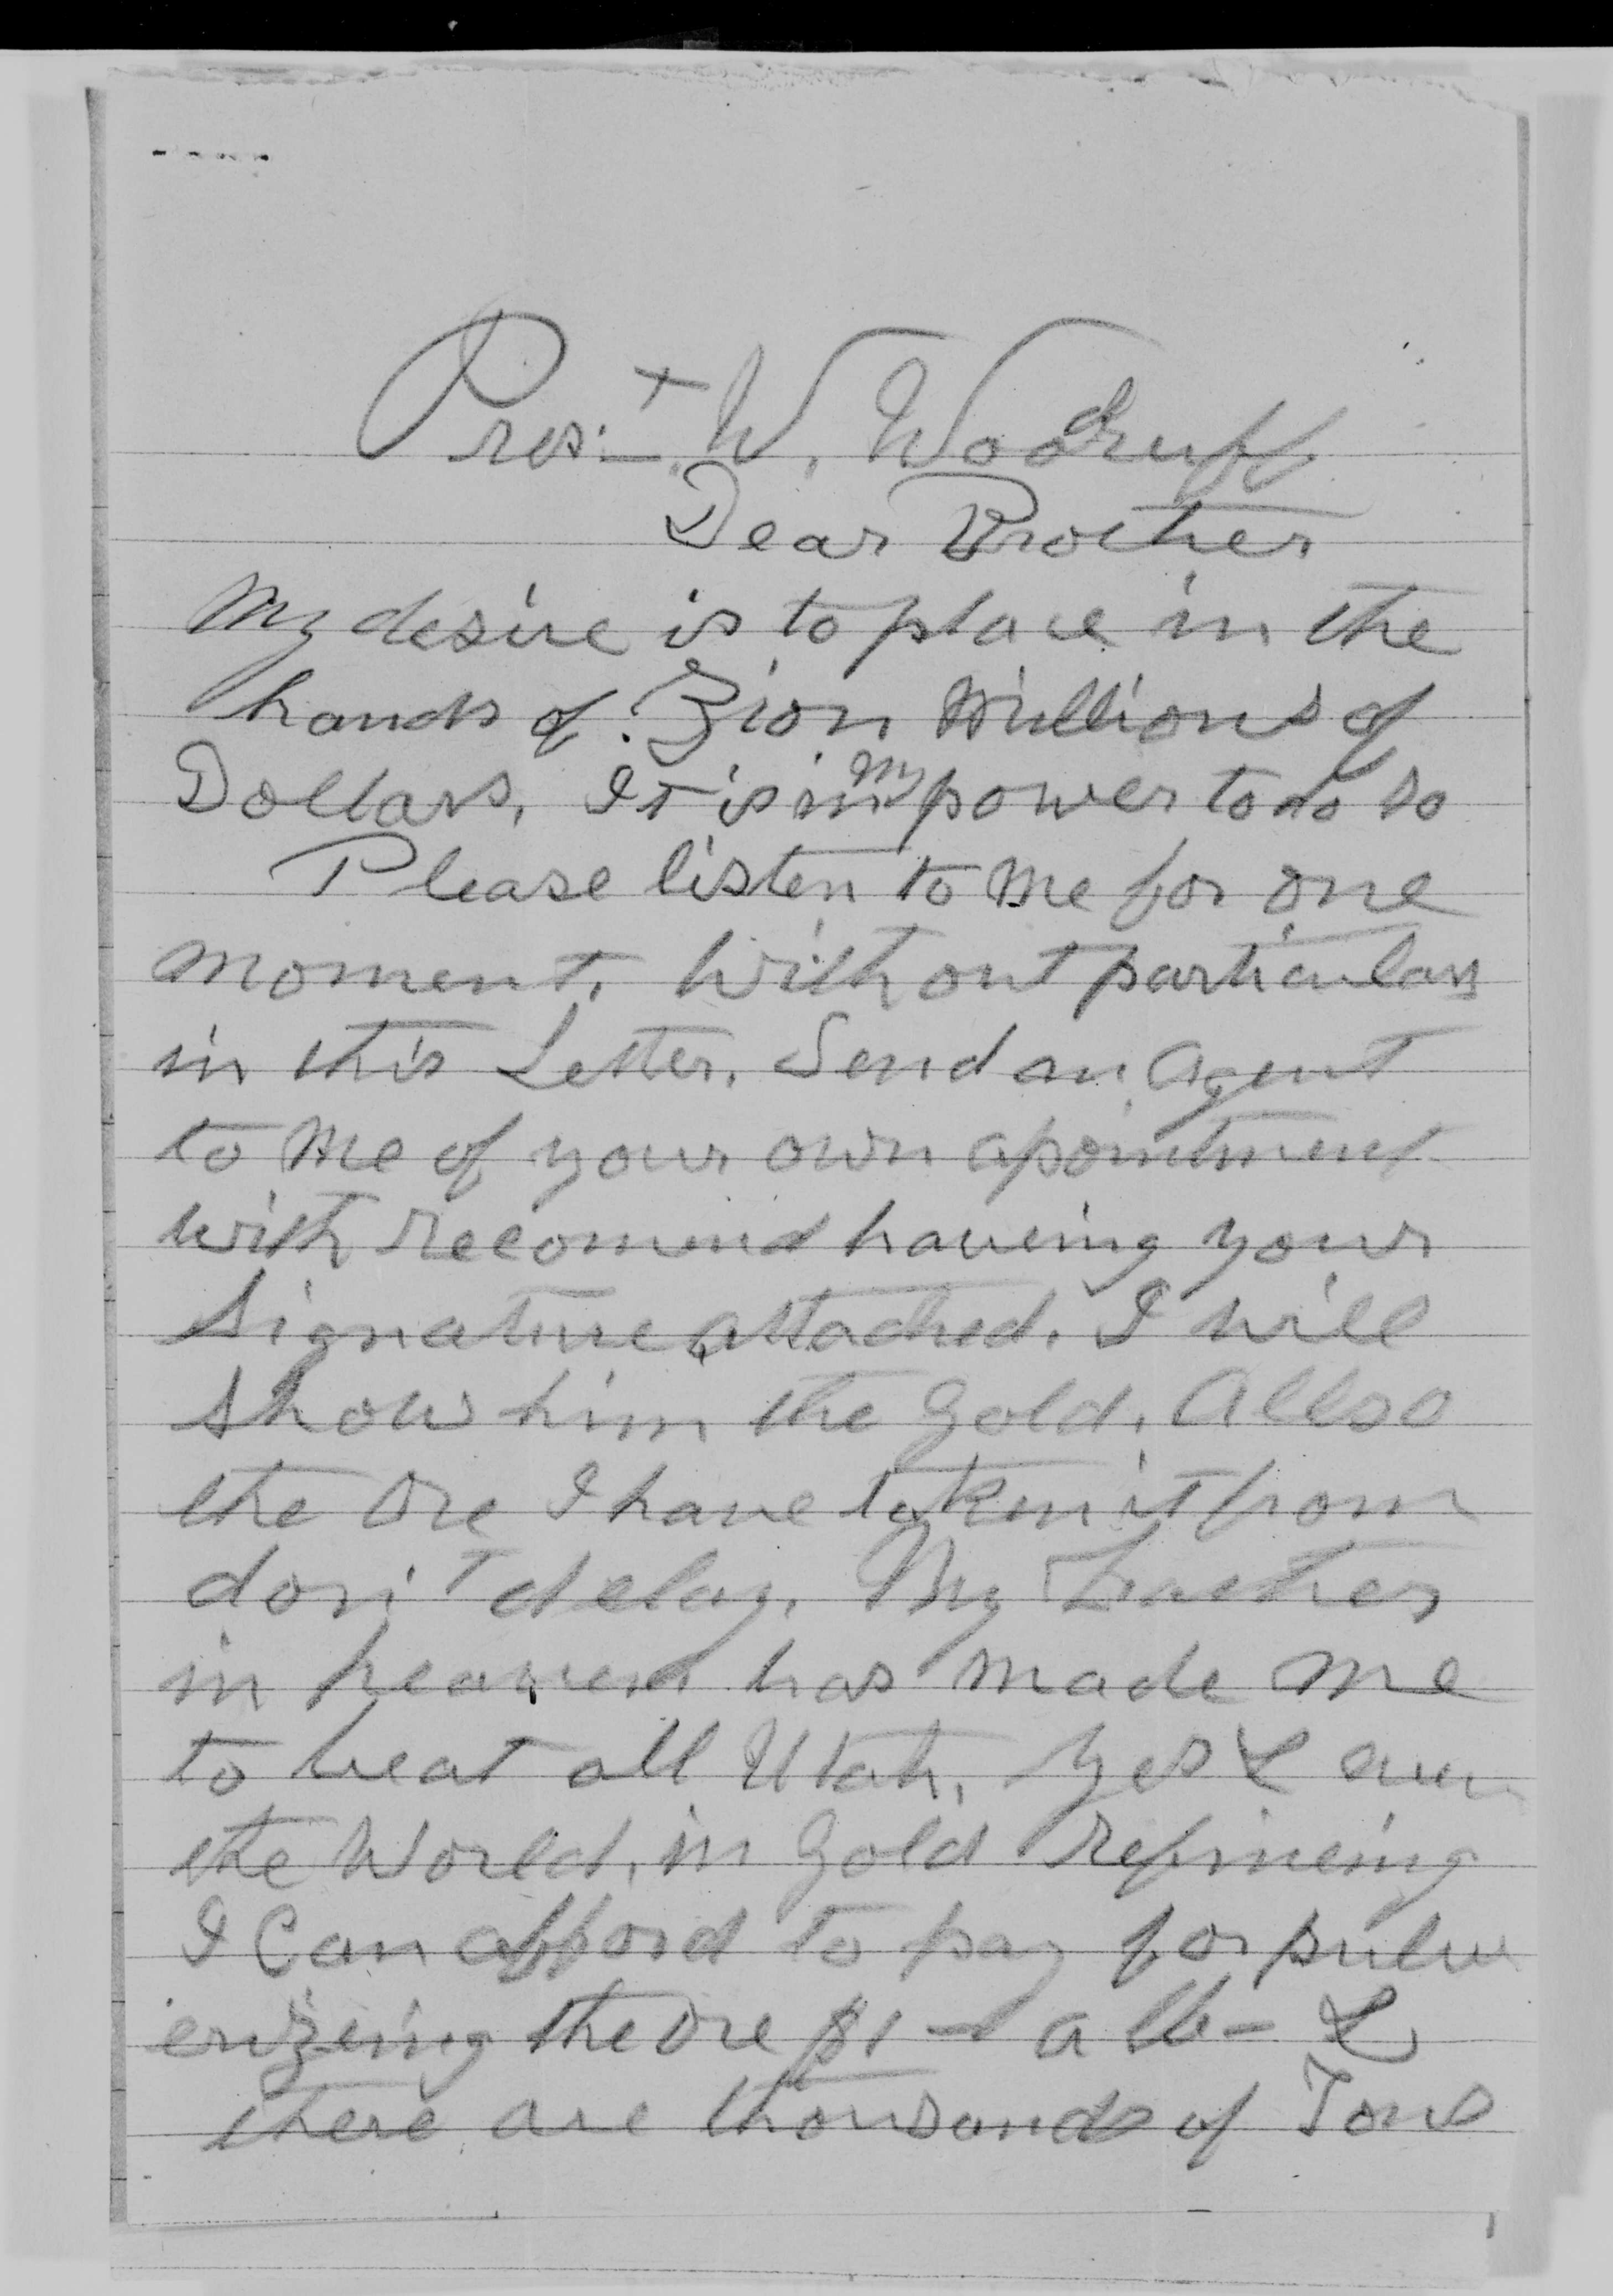 Pres.t W. Woodruff
Dear Brother
My desire is to place in the
hands of Zion Millions of
Dollars, It is in my power to do so
Please listen to me for one
moment. Without particulars
in this Letter. Send an Agent
to me of your own apointment
with recomend haveing your
Signature attached. I will
show him the Gold. Allso
the Ore I have taken it from
don't delay. My Father
in heaven has made me
to beat all Utah, Yes & even
the World, in Gold refineing
I Can afford to pay for pulv
erizeing the Ore $1– a lb– &
there are thousands of Tons